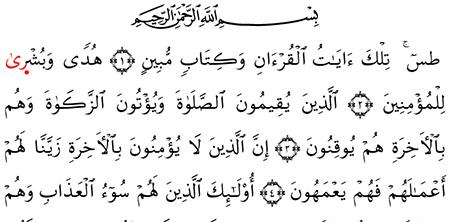 بِسْمِ ٱللَّهِ ٱلرَّحْمَٰنِ ٱلرَّحِيمِ
طسٓ ۚ تِلْكَ ءَايَٰتُ ٱلْقُرْءَانِ وَكِتَابٍ مُّبِينٍ ﴿١﴾ هُدًى وَبُشْرَىٰ
لِلْمُؤْمِنِينَ ﴿٢﴾ ٱلَّذِينَ يُقِيمُونَ ٱلصَّلَوٰةَ وَيُؤْتُونَ ٱلزَّكَوٰةَ وَهُم
بِٱلْءَاخِرَةِ هُمْ يُوقِنُونَ ﴿٣﴾ إِنَّ ٱلَّذِينَ لَا يُؤْمِنُونَ بِٱلْءَاخِرَةِ زَيَّنَّا لَهُمْ
أَعْمَٰلَهُمْ فَهُمْ يَعْمَهُونَ ﴿٤﴾ أُو۟لَٰٓئِكَ ٱلَّذِينَ لَهُمْ سُوٓءُ ٱلْعَذَابِ وَهُمْ